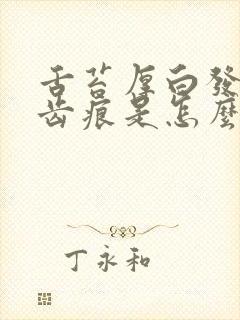 舌苔厚白發
齿痕是怎麼
丁永和